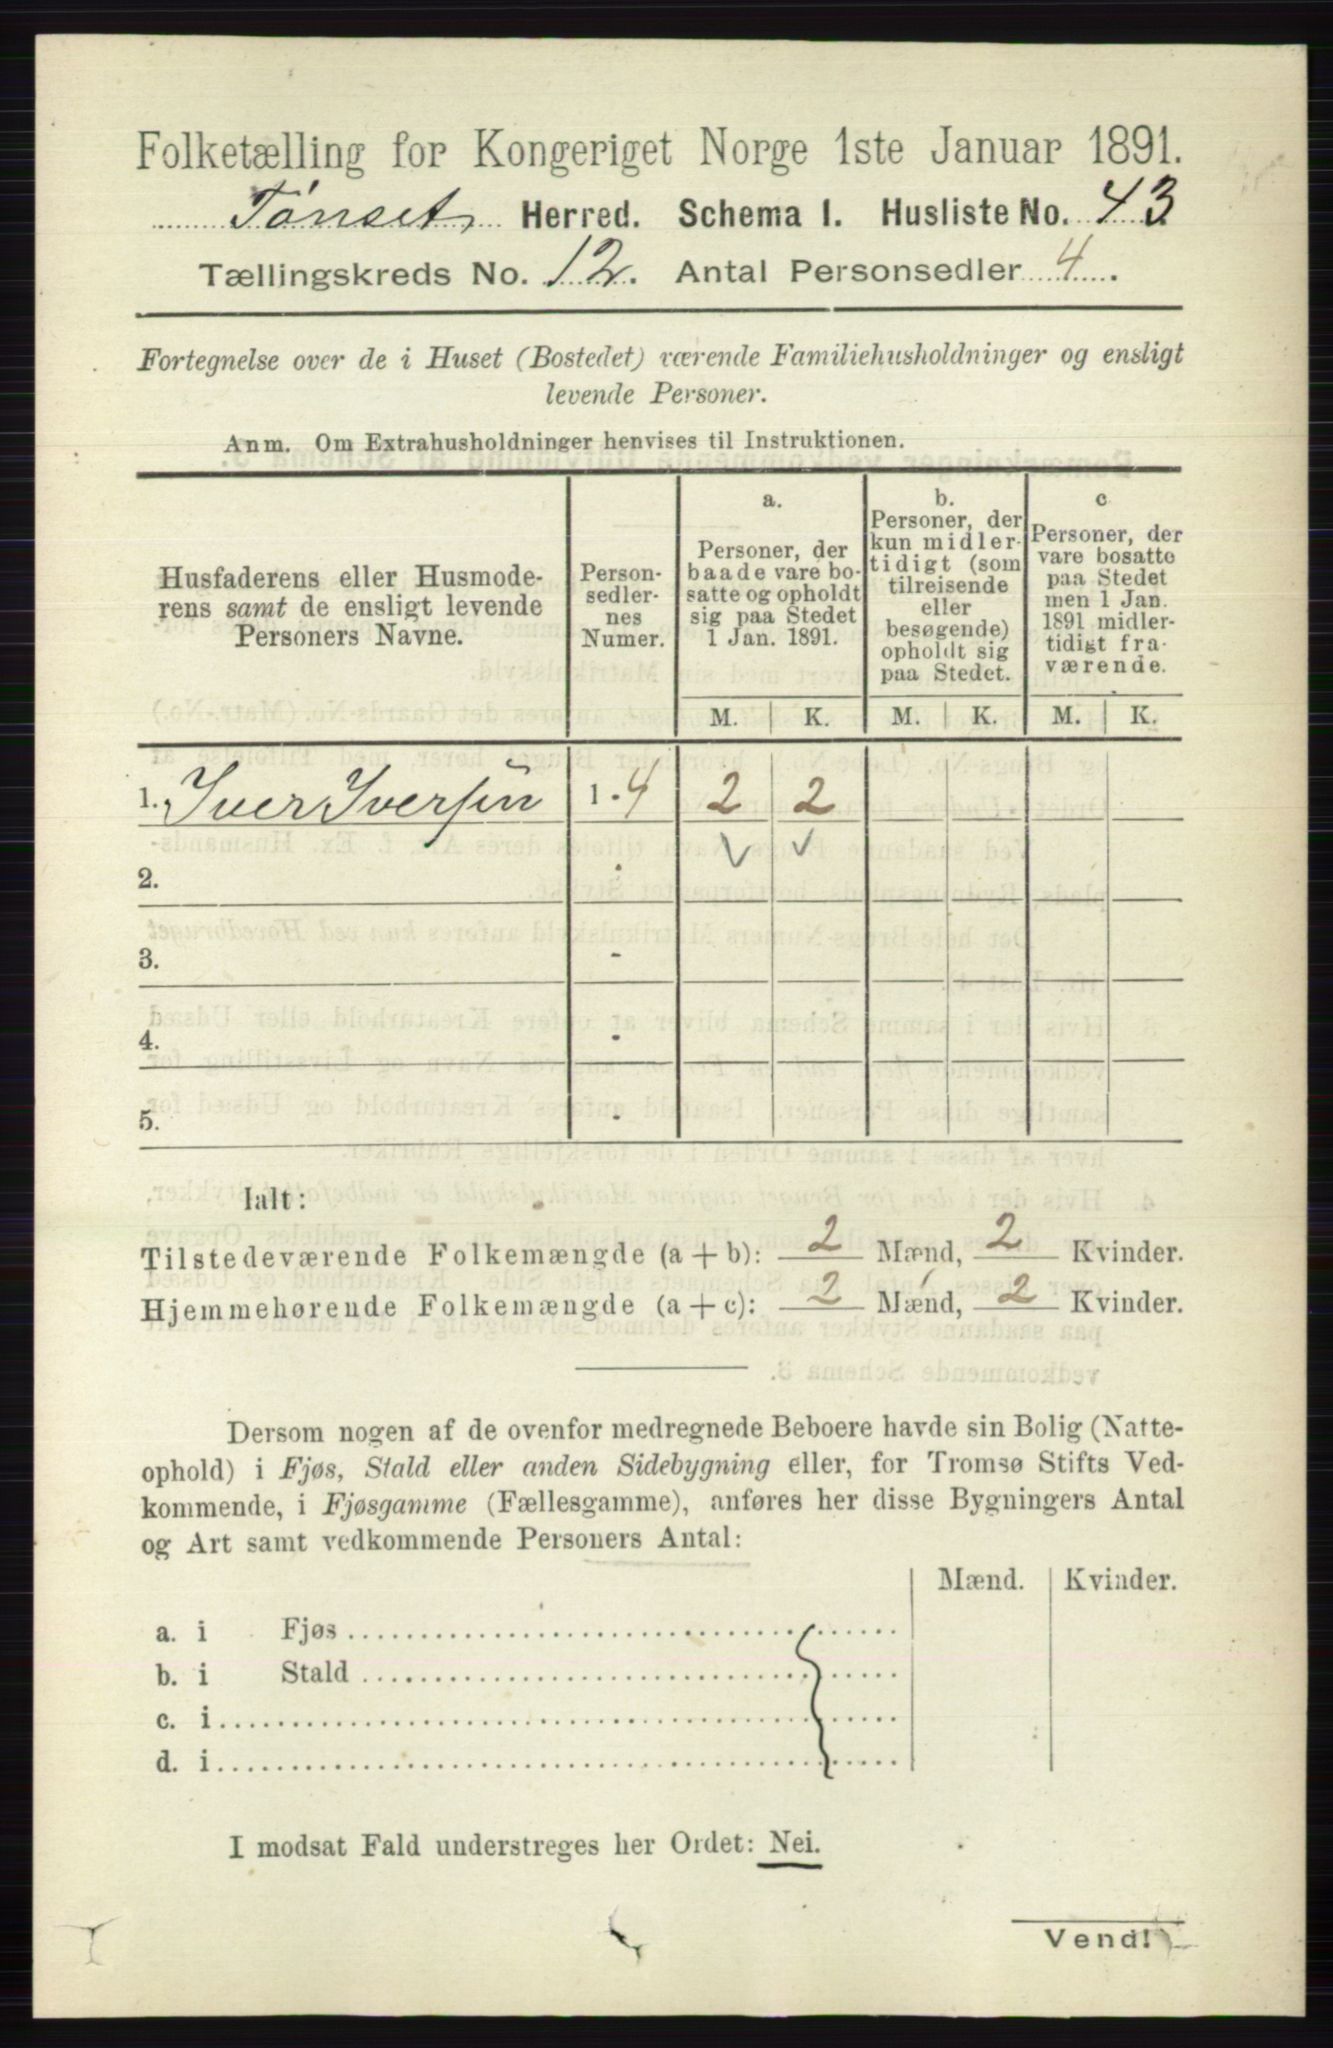 Folketælling for Kongeriget Norge 1ste Januar 1891.
Tønset Herred. Schema I. Husliste No. 43
Tællingskreds No. 12. Antal Personsedler 4.
Fortegnelse over de i Huset (Bostedet) værende Familiehusholdninger og ensligt
levende Personer.
Anm. Om Extrahusholdninger henvises til Instruktionen.
Husfaderens eller Husmode-
rens samt de ensligt levende
Personers Navne.
Person-
sedler-
nes
Numer.
a.
Personer, der
baade vare bo-
satte og opholdt
sig paa Stedet
1 Jan. 1891.
b.
Personer, der
kun midler-
tidigt (som
tilreisende
eller
besøgende)
opholdt sig
paa Stedet.
c
Personer, der
vare bosatte
paa Stedet
men 1 Jan.
1891 midler-
tidigt fra-
værende.
M. K. M. K. M. K.
1. Iver Iversen 1-4 2 2
2. -
3. -
4. -
5. -
Ialt:
Tilstedeværende Folkemængde (a + b): 2 Mænd, 2 Kvinder.
Hjemmehørende Folkemængde (a + c): 2 Mænd, 2 Kvinder.
Dersom nogen af de ovenfor medregnede Beboere havde sin Bolig (Natte-
ophold) i Fjøs, Stald eller anden Sidebygning eller, for Tromsø Stifts Ved-
kommende, i Fjøsgamme (Fællesgamme), anføres her disse Bygningers Antal
og Art samt vedkommende Personers Antal:
Mænd. Kvinder.
a. i Fjøs
b. i Stald
c. i
d. i
I modsat Fald understreges her Ordet: Nei.
Vend!